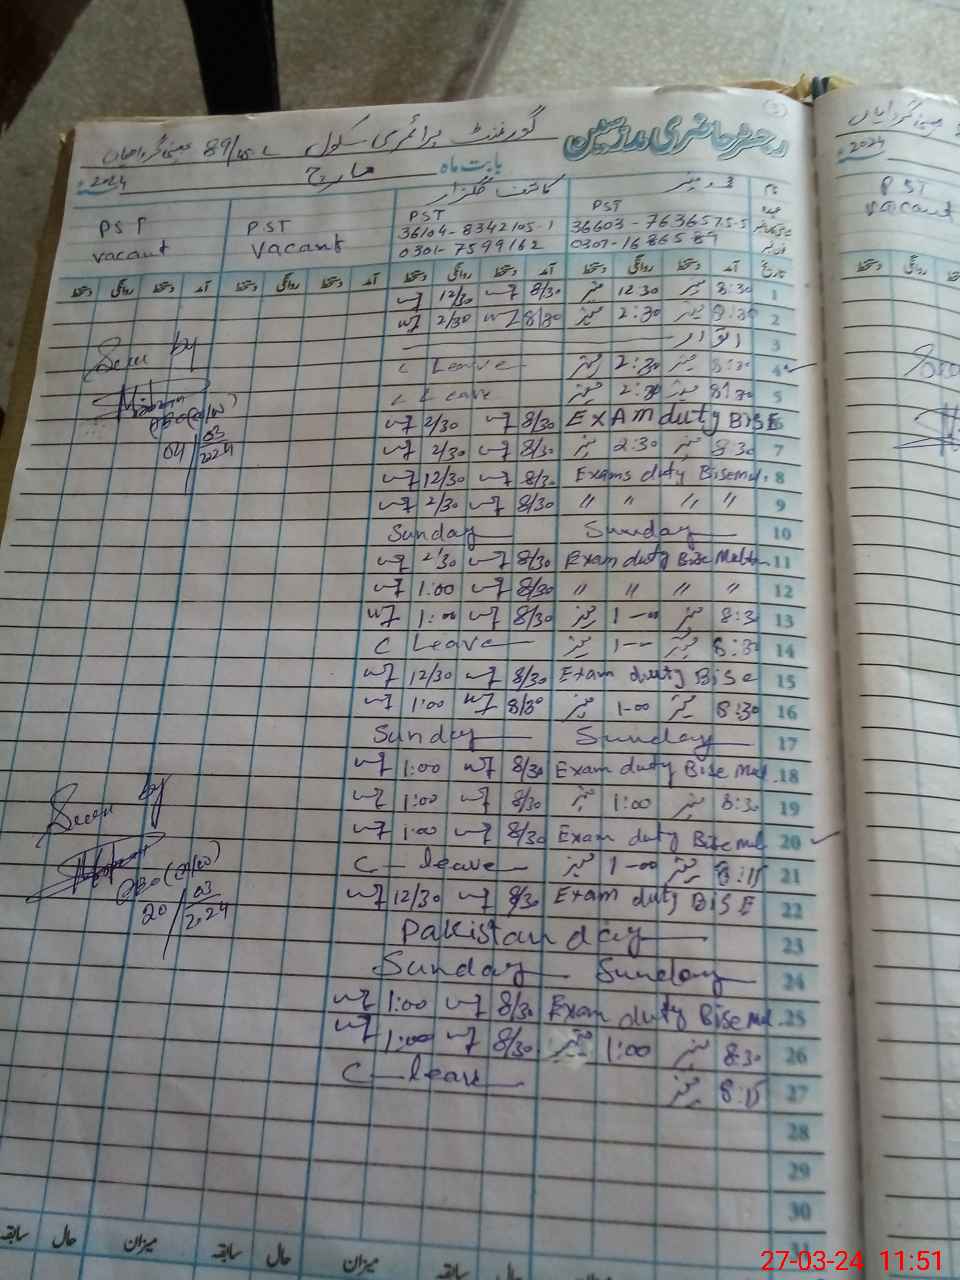 رجسٹر حاضری مدرسین
گورنمنٹ پرائمری سکول 89/15.L
بابت ماہ مارچ 2024
نام
PST PST PST PST
36603-7636575-5 36104-8342105-1 Vacant vacant
0307-1686589 0301-7599162
تاریخ آمد دستخط روانگی دستخط آمد دستخط روانگی دستخط آمد دستخط روانگی دستخط آمد دستخط روانگی دستخط
1 8:30 12:30 8/30 12/30
2 8:30 2:30 8/30 2/30
3 اتوار
4 8:30 2:30 C Leave
5 8:30 2:30 C Leave
6 EXAM duty BISE 8/30 2/30
7 8:30 2:30 8/30 2/30
8 Exams duty Bisemul. 8/30 12/30
9 " " " " 8/30 2/30
10 Sunday Sunday
11 Exam duty Bise 8/30 2/30
12 " " " " 8/30 1:00
13 8:30 1-00 8/30 1:00
14 8:30 1-- C Leave
15 Exam duty Bise 8/30 12/30
16 8:30 1-00 8/30 1:00
17 Sunday Sunday
18 Exam duty Bise Mul. 8/30 1:00
19 8:30 1:00 8/30 1:00
20 Exam duty Bise mul 8/30 1:00
21 8:15 1-00 C-leave
22 Exam duty BISE 8/30 12/30
23 Pakistan day
24 Sunday Sunday
25 Exam duty Bise mul. 8/30 1:00
26 8:30 1:00 8/30 1:00
27 8:15 C-leave
28
29
30
31
Seen by
04/03/2024
Seen by
20/03/2024
میزان حال سابقہ میزان حال سابقہ
2024
PST
vacant
دستخط روانگی
27-03-24 11:51